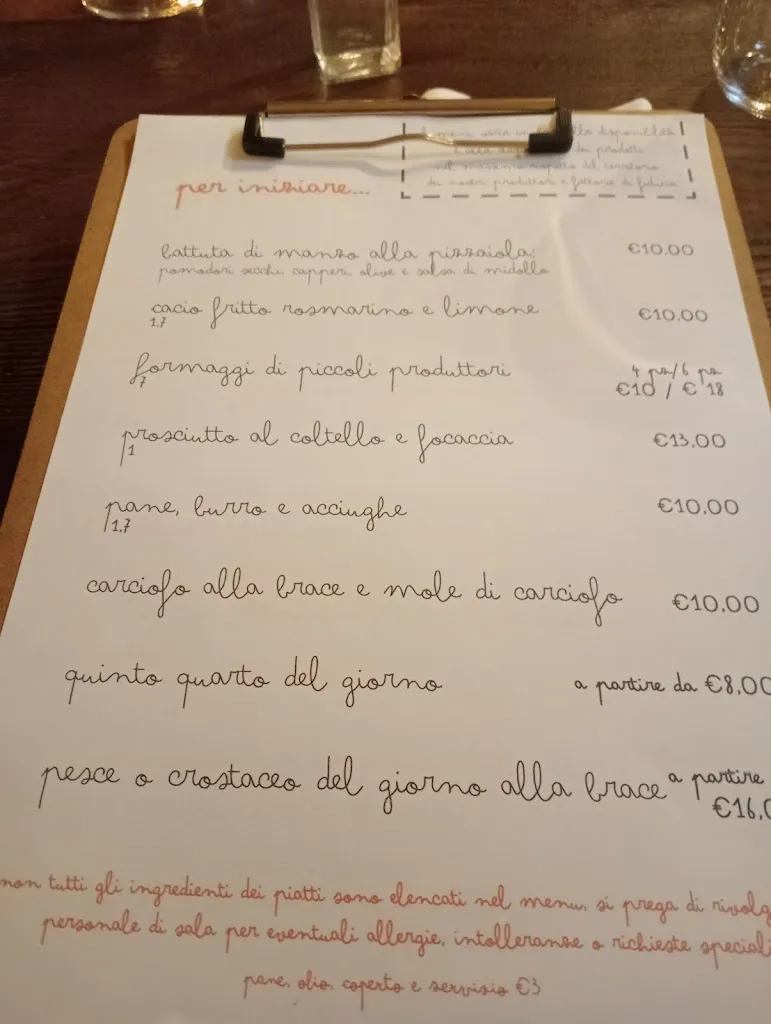 il menu varia in alla disponibilità
e alla dei prodotti
nel massimo rispetto del territorio
dei nostri produttori e fattorie di fiducia
per iniziare...
battuta di manzo alla pizzaiola: €10,00
pomodori secchi, capperi, olive e salsa di midollo
cacio fritto rosmarino e limone €10,00
1.7
formaggi di piccoli produttori 4 pz/6 pz
7 €10 / € 18
prosciutto al coltello e focaccia €13,00
1
pane, burro e acciughe €10,00
1.7
carciofo alla brace e mole di carciofo €10,00
quinto quarto del giorno a partire da €8,00
pesce o crostaceo del giorno alla brace a partire
€16,0
non tutti gli ingredienti dei piatti sono elencati nel menu, si prega di rivolg
personale di sala per eventuali allergie, intolleranze o richieste speciali
pane, olio, coperto e servizio €3